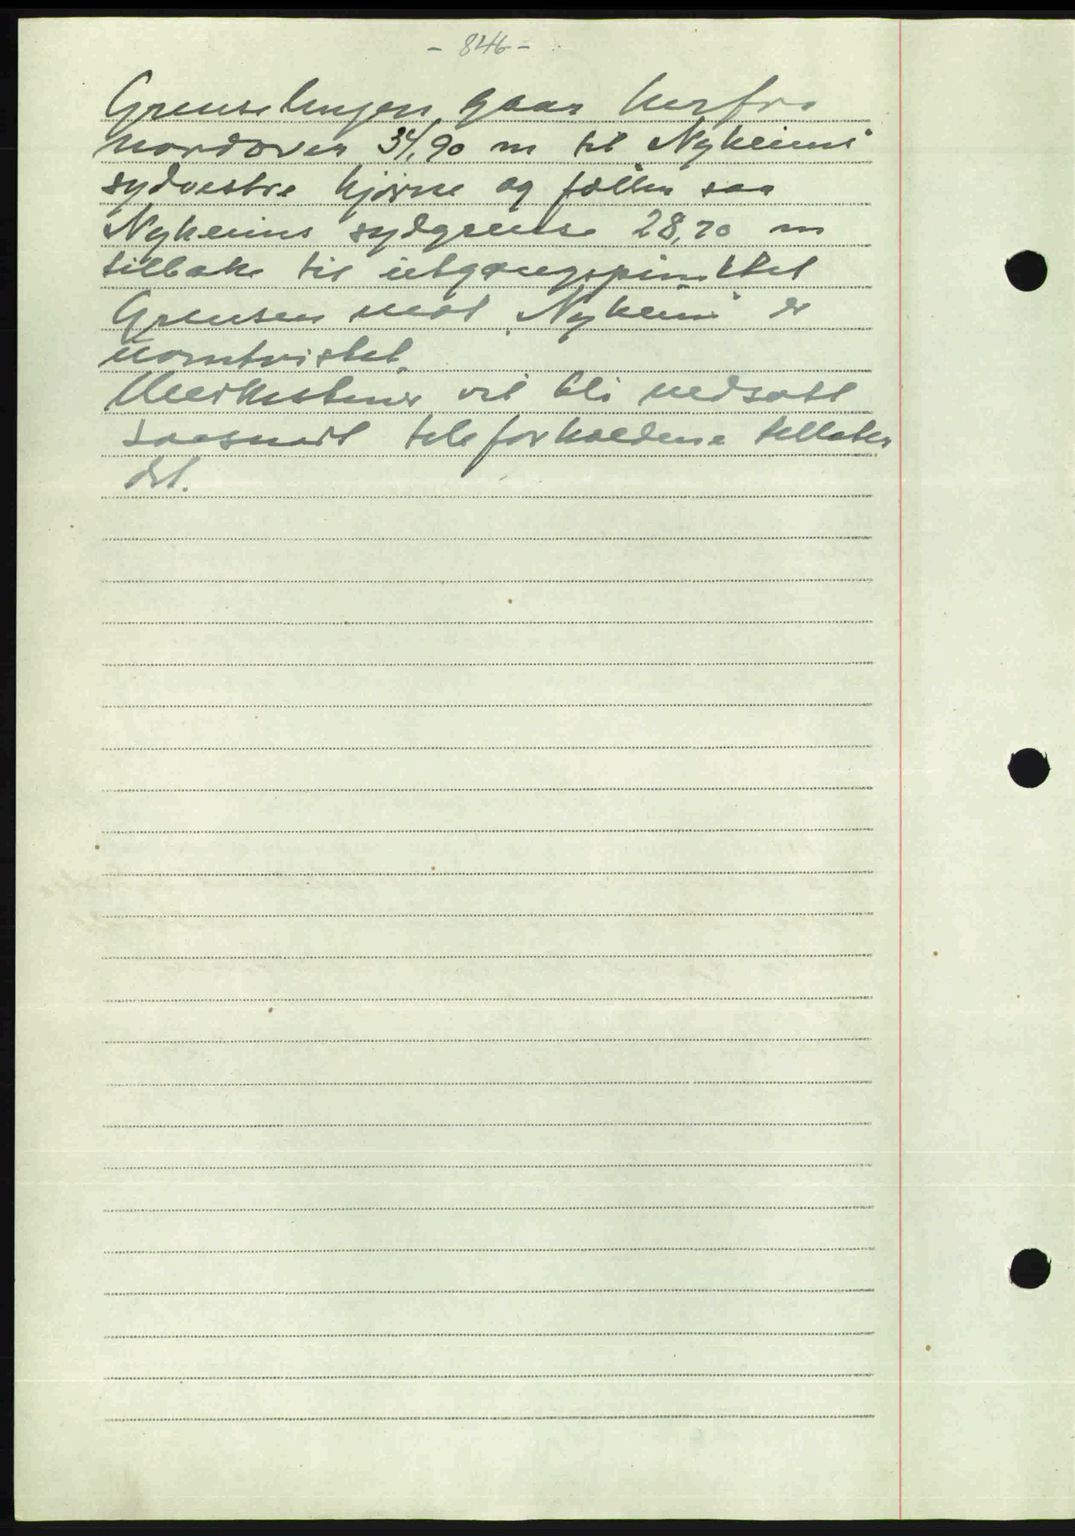 - 846 -
Grenselinjen gaar herfra
nordover 34,90 m til Nyheims
sydvestre hjørne og følger saa
Nyheims sydgrense 28,70 m
tilbake til utgangspunktet
Grensen mot "Nyheim" er
uomtvistet.
Merkestener vil bli nedsatt
saasnart teleforholdene tillater
det.